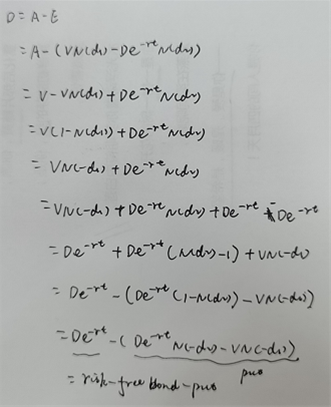 D = A - E
= A - (VN(d1) - De^-rt N(d2))
= V - VN(d1) + De^-rt N(d2)
= V(1 - N(d1)) + De^-rt N(d2)
= VN(-d1) + De^-rt N(d2)
= VN(-d1) + De^-rt N(d2) + De^-rt - De^-rt
= De^-rt + De^-rt (N(d2) - 1) + VN(-d1)
= De^-rt - (De^-rt (1 - N(d2)) - VN(-d1))
= De^-rt - (De^-rt N(-d2) - VN(-d1))
put
= risk-free bond - put